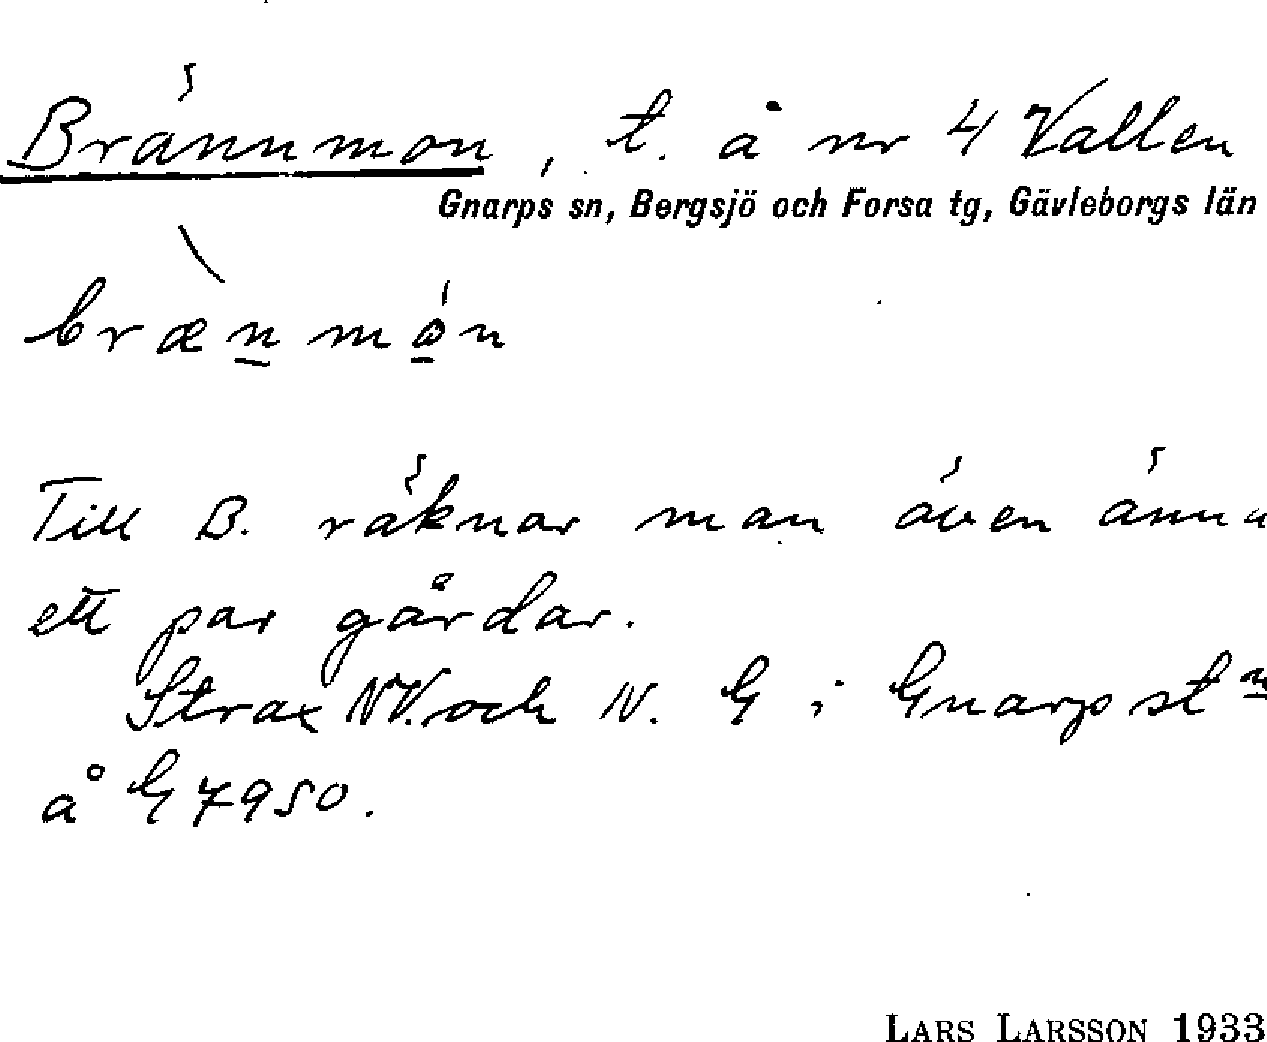 Brännmon, t. å nr 4 Vallen
Gnarps sn, Bergsjö och Forsa tg, Gävleborgs län
bræ̀n̲mó̲n
Till B. räknar man även ännu
ett par gårdar.
Strax NV. och N. G i Gnarp st n
å G 7950.
LARS LARSSON 1933